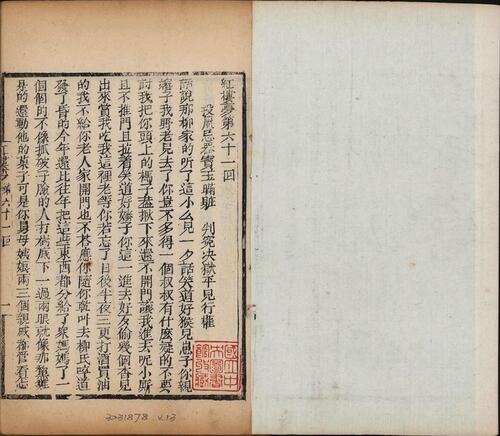 紅樓夢第六十一回
投鼠忌器寶玉瞞贓　判冤決獄平兒行權
話說那柳家的听了這小么兒一夕話笑道好猴兒崽子你親
嬸子找野老兒去了你豈不多得一個叔叔有什麼疑的不要
討我把你頭上的榪子蓋揪下來還不開門讓我進去呢小厮
且不推門且拉着笑道好嬸子你這一進去好歹偷幾個杏兒
出來賞我吃我這裡老等你若忘了日後半夜三更打酒買油
的我不給你老人家開門也不荅應你隨你乾叫去柳氏啐道
發了昏的今年還比往年把這些東西都分給了眾媽媽了一
個個的不像抓破了臉的人打樹底下一過兩眼就像那黧雞
是的還動他的菓子可是你舅母姨娘兩三個親戚都管着怎
紅樓夢　第六十一回　一
3031878 v.13